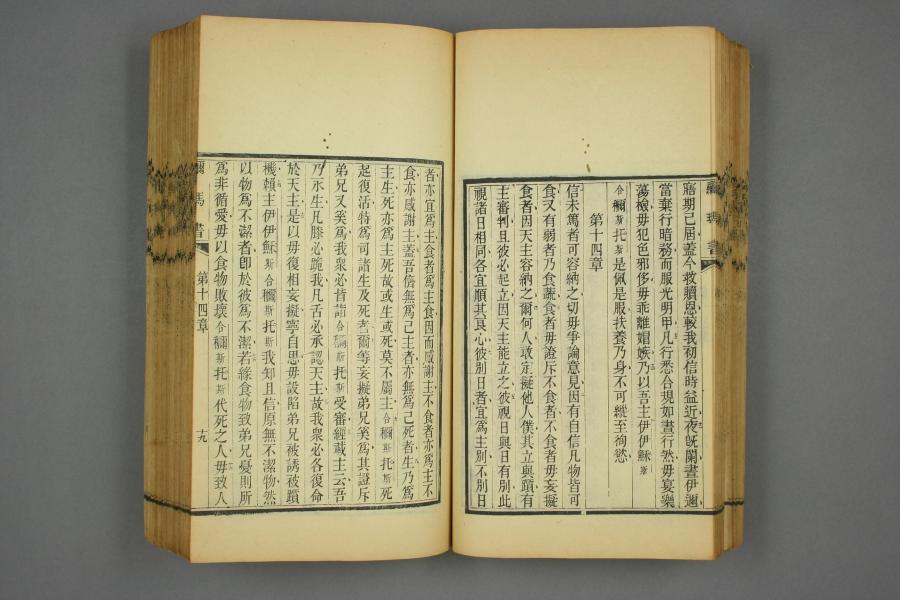 寤期已屆蓋今救贖恩較我初信時益近夜旣闌晝伊邇
當棄行暗務而服光明甲凡行悉合規如晝行然毋宴樂
蕩檅毋犯色邪侈毋乖離媢嫉乃以吾主伊伊穌斯
合穪斯托斯是佩是服扶養乃身不可縱至徇慾
第十四章
信未篤者可容納之切毋爭論意見因有自信凡物皆可
食又有弱者乃食蔬食者毋證斥不食者不食者毋妄擬
食者因天主容納之爾何人敢定擬他人僕其立與躓有
主審判且彼必起立因天主能立之彼視日與日有別此
視諸日相同各宜順其良心彼別日者宜爲主別不別日
者亦宜爲主食者爲主食因而感謝主不食者亦爲主不
食亦感謝主蓋吾儕無爲己主者亦無爲己死者生乃爲
主生死亦爲主死故或生或死莫不屬主合穪斯托斯死
起復活特爲可諸生及死者爾等妄擬弟兄奚爲其證斥
弟兄又奚爲我衆必皆詣合穪斯托斯受審經載主云吾
乃永生凡膝必跪我凡舌必承認天主故我衆必各復命
於天主是以毋復相妄擬寧自思毋設陷弟兄被誘被躓
機賴主伊伊穌斯合穪斯托斯我知且信原無不潔物然
以物爲不潔者卽於彼爲不潔若緣食物致弟兄憂則所
爲非循愛毋以食物敗壞合穪斯托斯代死之人毋致人
爾瑪書
第十四章
十九